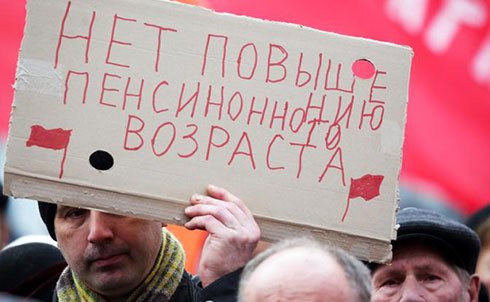 НЕТ ПОВЫШЕ
НИЮ
ПЕНСИНОННОГО
ВОЗРАСТА